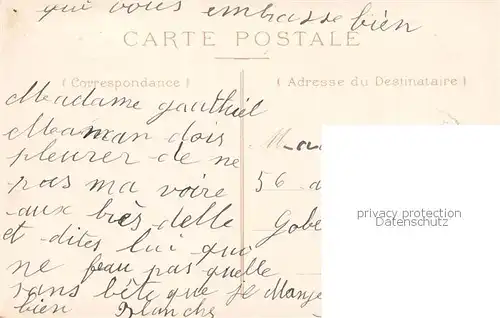 qui vous embrasse bien
CARTE POSTALE
(Correspondance)
(Adresse du Destinataire)
Madame gauthiel
Maman dois
pleurer de ne
pas ma voire
aux brès delle
et dites lui qui
ne feau pas quelle
sans bète que je Mange
bien Blanche
56
Gobe
privacy protection
Datenschutz